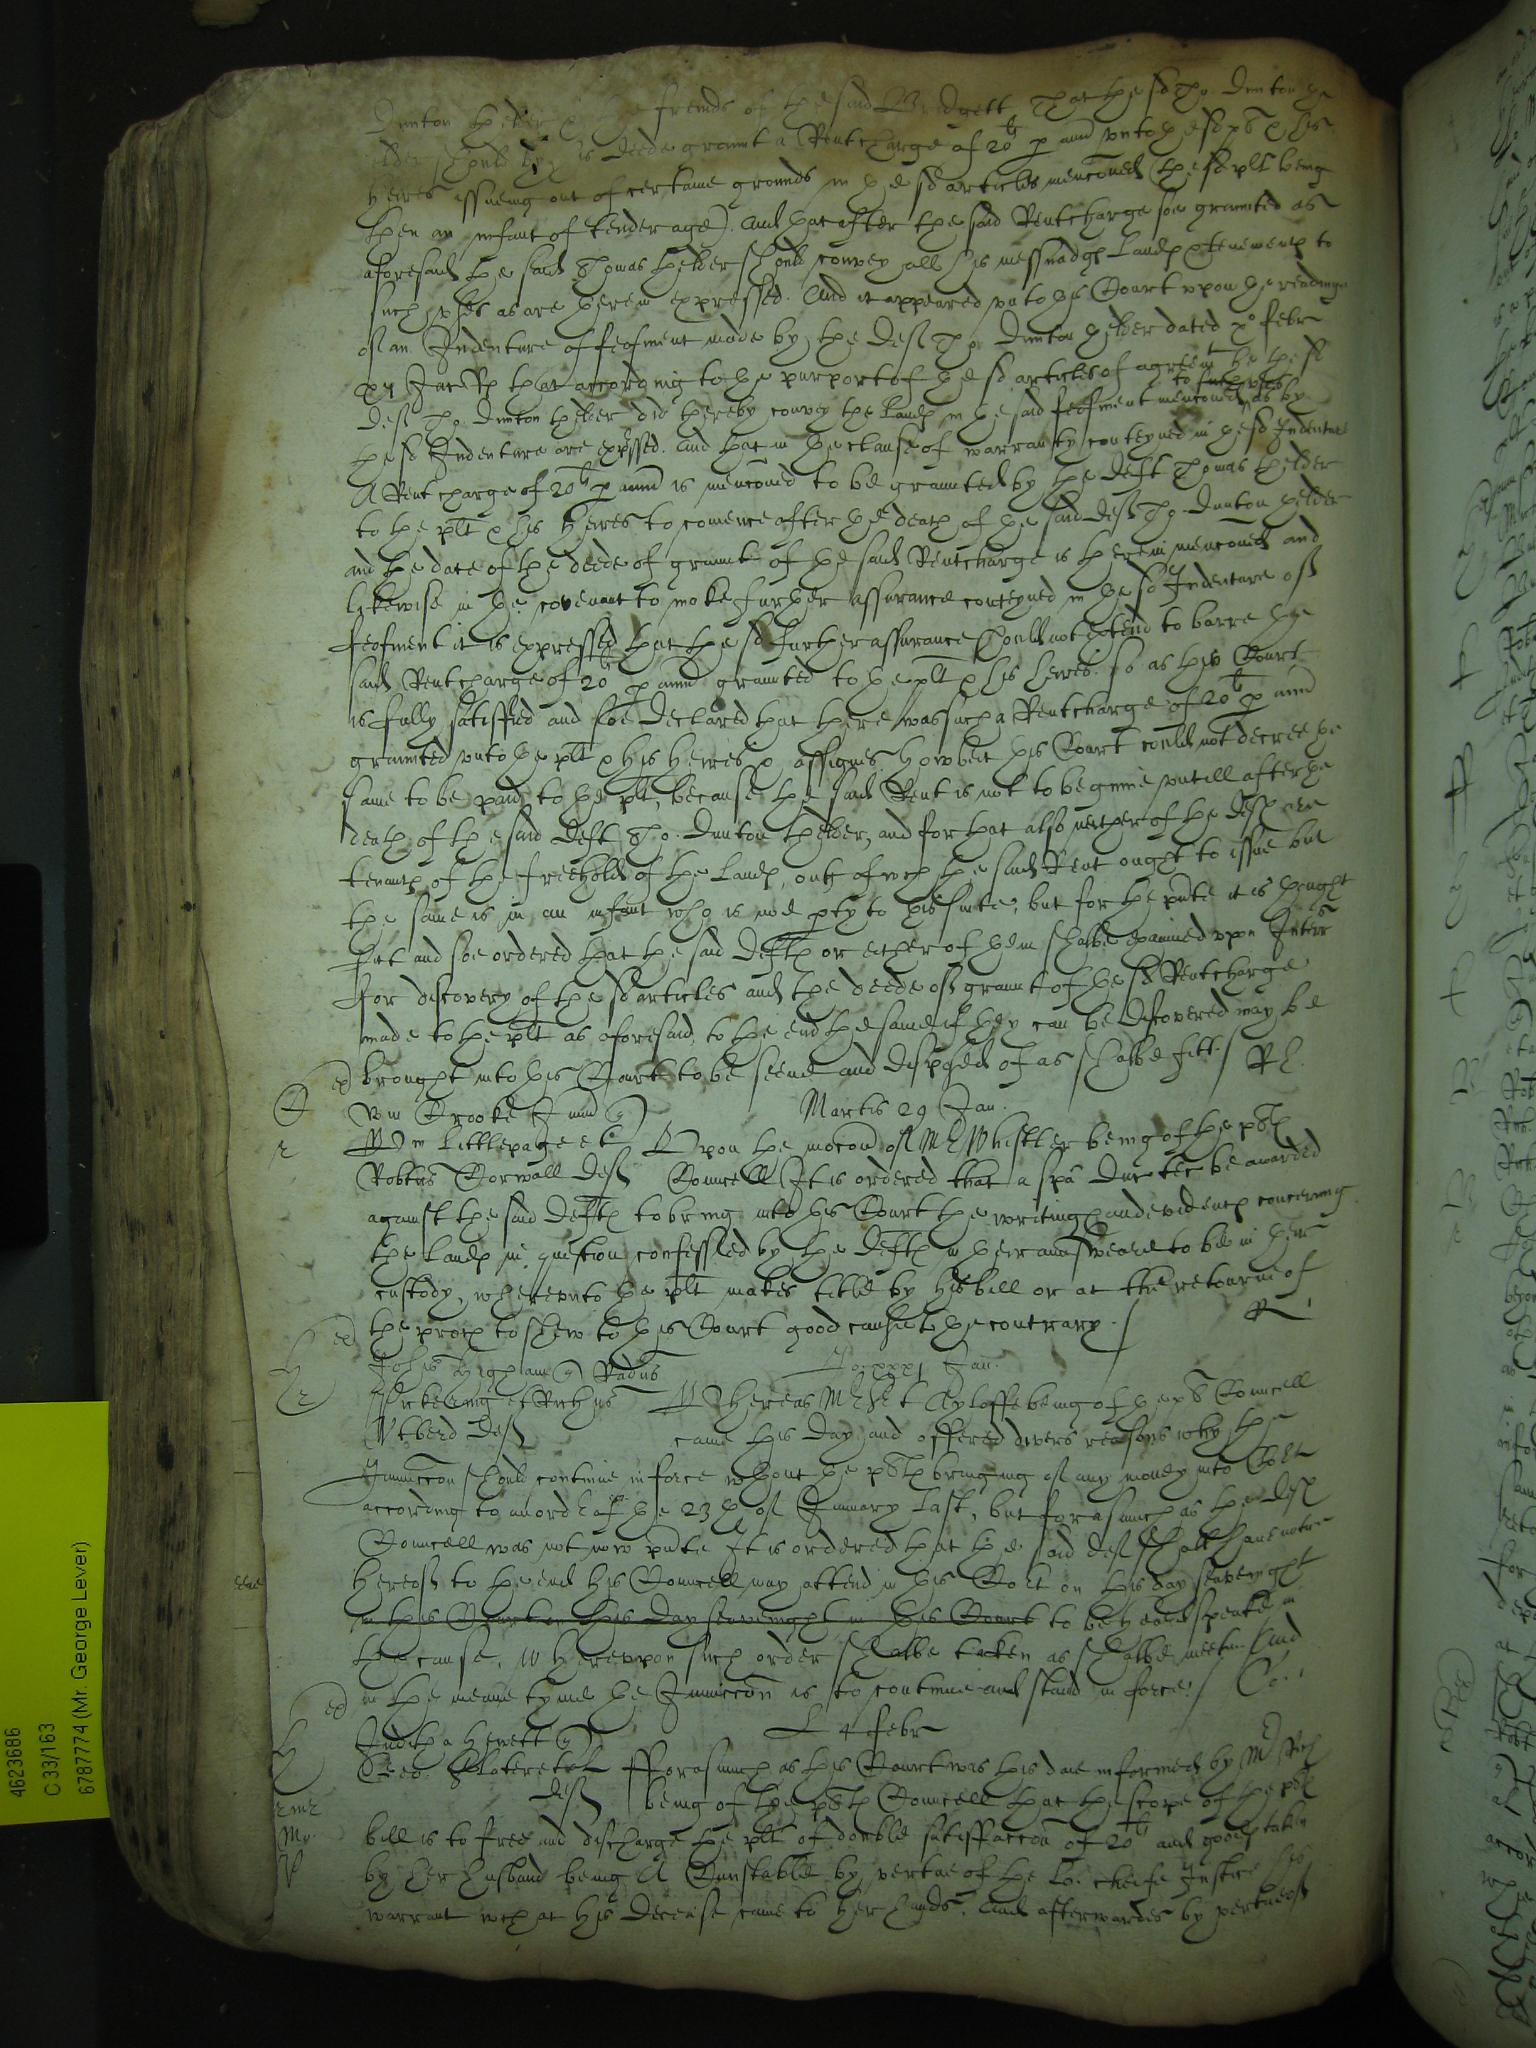 Dunton thelder & the frends of the said Bridgett That the sd Tho: Dunton the
elder should by his deede graunt a Rentcharge of 20ˡⁱ p ann vnto the sd plt & his
heires issueing out of certaine grounds in the sd articles menconed (the sd plt being
then an infant of tender age) And that after the said Rentcharge soe graunted as
aforesaid the said Thomas thelder should convey all his messuadgs Lands & tenements to
such vses as are therein expressed. And it appeared vnto this Court vpon the readinge
of an Indenture of feofment made by the Deft Tho: Dunton thelder dated xº febr
xv Jac Rs that according to the purport of the sd articles of agreemt he the sd
Deft Tho: Dunton thelder did thereby convey the Lands in the said feofment menconed to such vses as by
the sd Indenture are expressed. And that in the clause of warranty conteyned in the sd Indenture
A Rent charge of 20ˡⁱ p annu is menconed to be graunted by the Deft Thomas thelder
to the plt & his heires to comence after the death of the said Deft Tho: Dunton thelder
and the date of the deede of graunt of the said Rentcharge is therein menconed and
likewise in the covenant to make further assurance conteyned in the sd Indenture of
feofment it is expressed that the sd further assurance should not extend to barre the
said Rentcharge of 20ˡⁱ p annu graunted to the plt & his heires. so as this Court
is fully satisfied and soe declared that there was such a Rentcharge of 20ˡⁱ p annu
graunted vnto the plt & his heires & assignes howbeit this Court could not decree the
same to be paid to the plt, because the said Rent is not to beginne vntill after the
death of the said Deft Tho: Dunton thelder, and for that also neither of the Defts are
tenants of the freehold of the Lands, out of wch the said Rent ought to issue but
the same is in an infant who is noe pty to this suite, but for the pnte it is thought
fitt and soe ordered that the said Defts or either of them shalbe examined vpon Interr
for discovery of the sd articles and the deede of graunt of the sd Rentcharge
made to the plt as aforesaid, to the end the same if they can be discovered may be
brought into this Court to be seene and disposed of as shalbe fitt. /
Wm Crooke
Martis 29 Jan.
Wm Littlepage et
Robtus Cornwall Defts
Vpon the mocon of Mr Whistler being of the plts
Councell It is ordered that a spa Duc tec be awarded
against the said Defts to bring into this Court the writings and evidents concerning
the Lands in question confessed by the Defts in their answeare to be in their
custody, wherevnto the plt makes title by his bill or at the retourne of
the proces to shew to this Court good cause to the contrary. /
Johis Higham q Radus
Jo: xxxj Jan:
Pickering et Richus
Defts
Whereas Mr Ayloffe being of the plts Councell
came this day and offered divers reasons why the
Iniunccon should continue in force wthout the plts bringing of any money into Cort
according to an order of the 23th of January last, but forasmuch as the Defts
Councell was not now pnte It is ordered that the said Deft shall have notice
hereof to the end his Councell may attend in this Cort on this day seavenight
in this Court on this day seavenight in this Court to be heard speake in
the cause, Wherevpon such order shalbe taken as shalbe meete. And
in the meane tyme the Iniunccon is to continue and stand in force. /
Juditha Hewett q
L 4 febr
Geo:
Deft
fforasmuch as this Court was this daie informed by Mr Rich
being of the plts Councell that the scope of the plts
bill is to free and discharge the plt of double satisfaccon of 20ˡⁱ and goods taken
by her husband being A Cunstable by vertue of the Lo: cheife Justice his
warrant wch at his decease came to her hands. And afterwardes by vertue of
4623686
C 33/163
6787774 (Mr. George Lever)